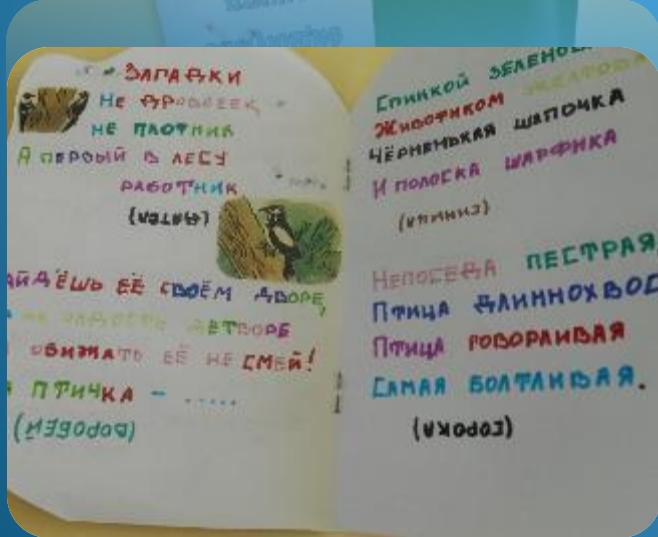 ЗАГАДКИ
НЕ ДРОВОСЕК
НЕ ПЛОТНИК
А ПЕРВЫЙ В ЛЕСУ
РАБОТНИК
(ДЯТЕЛ)
АЙДЁШЬ ЕЁ СВОЁМ ДВОРЕ,
НА РАДОСТЬ ДЕТВОРЕ
ОБИЖАТЬ ЕЁ НЕ СМЕЙ!
ПТИЧКА - .....
(ВОРОБЕЙ)
СПИНКОЙ ЗЕЛЕНОВА
ЖИВОТИКОМ ЖЕЛТОВА
ЧЁРНЕНЬКАЯ ШАПОЧКА
И ПОЛОСКА ШАРФИКА
(СИНИЦА)
НЕПОСЕДА ПЕСТРАЯ,
ПТИЦА ДЛИННОХВОС
ПТИЦА ГОВОРЛИВАЯ
САМАЯ БОЛТЛИВАЯ.
(СОРОКА)